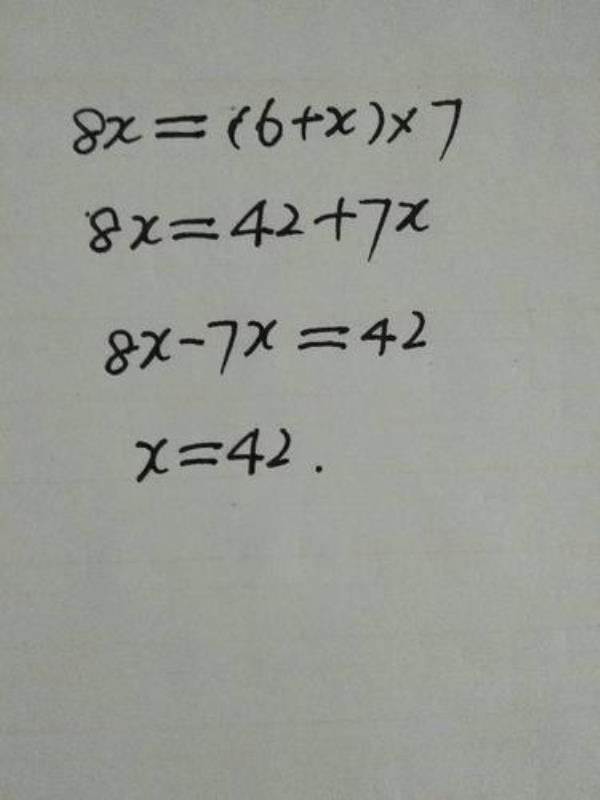 8x=(6+x)×7
8x=42+7x
8x-7x=42
x=42.